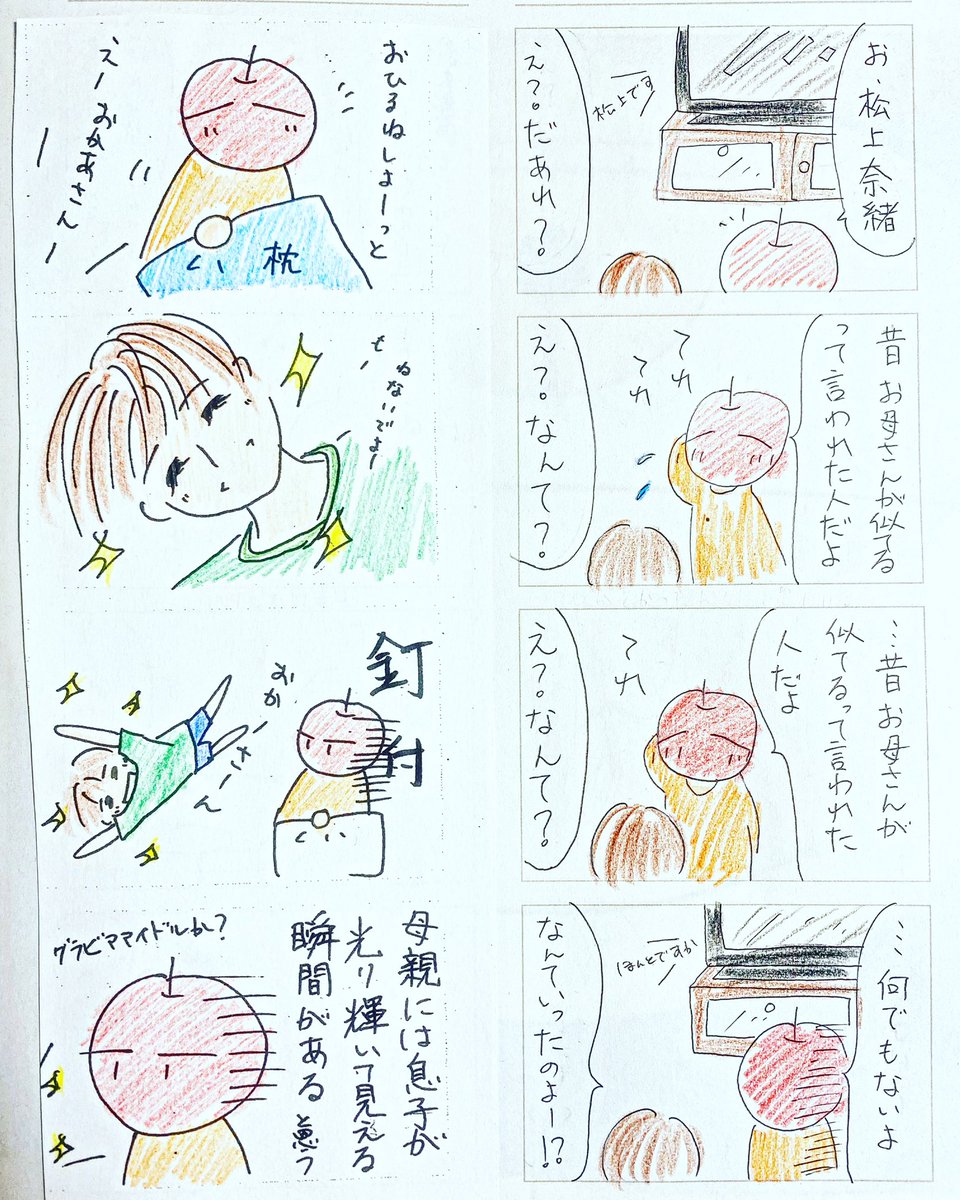 お、松上奈緒
松上です
え?。だあれ?。
昔お母さんが似てる
って言われた人だよ
てれ
てれ
え?。なんて?。
…昔お母さんが
似てるって言われた
人だよ
てれ
え?。なんて?。
…何でもないよ
ほんとですか
なんていったのよー!?
おひるねしよーっと
えーおかあさんー
枕
も、ねないでよー
釘付
おかーさーん
母親には息子が
光り輝いて見える
瞬間がある と思う
グラビアアイドルか?